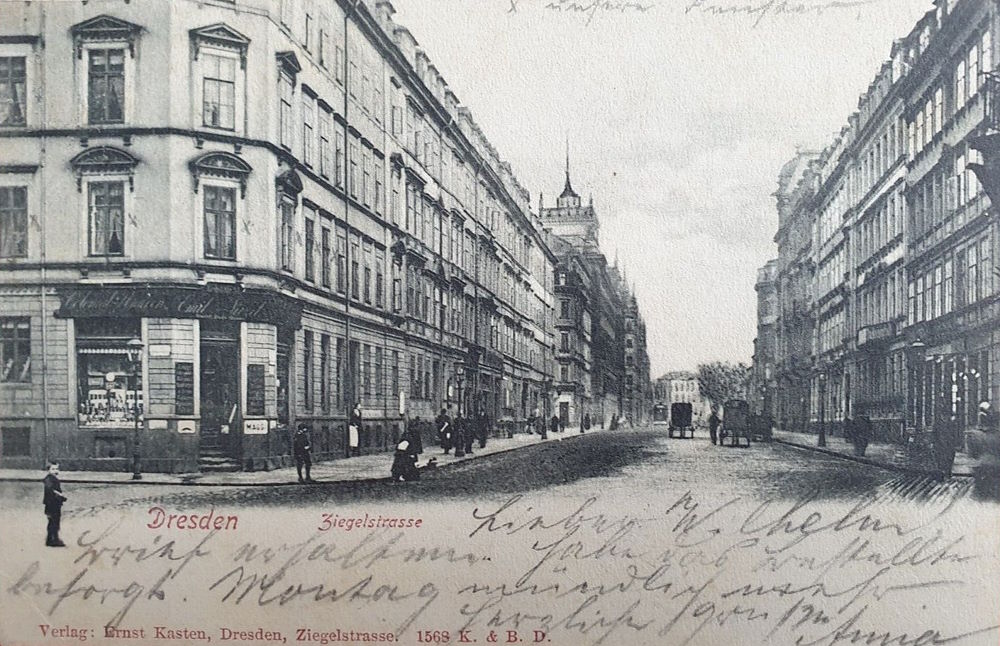 x unsere Fenster
MAGGI
Dresden
Ziegelstrasse
Lieber Wilhelm!
Brief erhalten. habe das bestellte
besorgt. Montag mündlich mehr
herzliche Grüße
Anna
Verlag: Ernst Kasten, Dresden, Ziegelstrasse. 1568 K. & B. D.